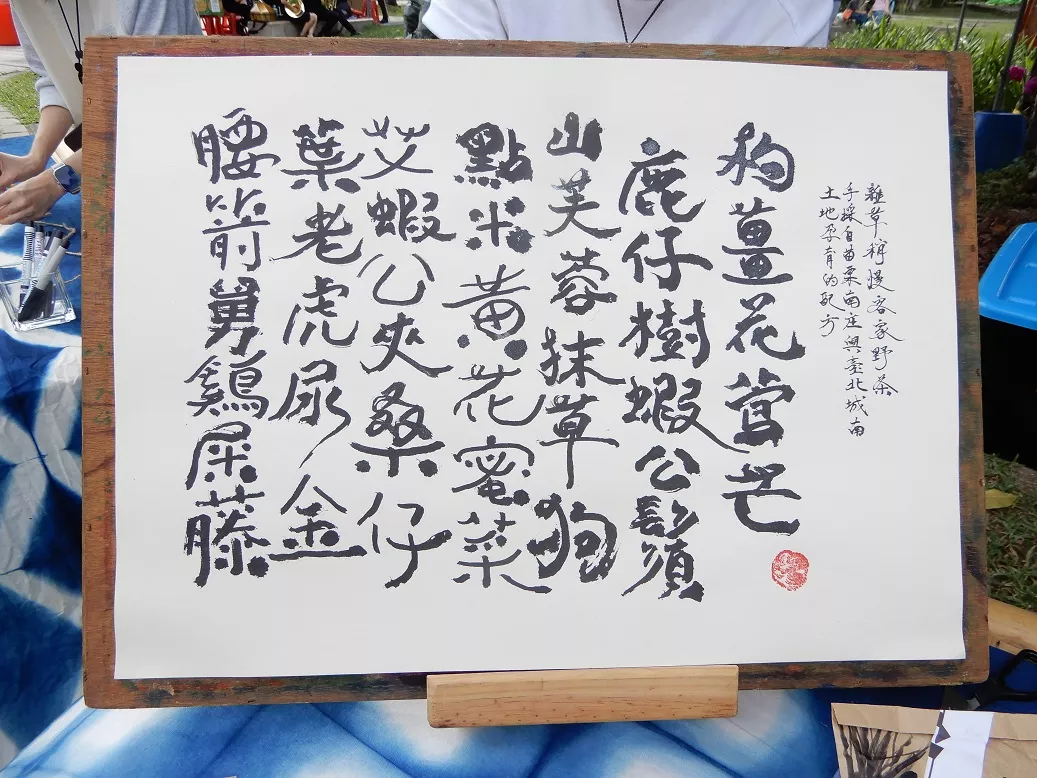 雜草稍慢客家野茶
手採自苗栗南庄與臺北城南
土地孕育的配方
薑花菅芒
鹿仔樹蝦公鬚
山芙蓉抹草狗
點米黃花蜜菜
艾蝦公夾桑仔
葉老虎尿金
腰箭舅鷄屎藤